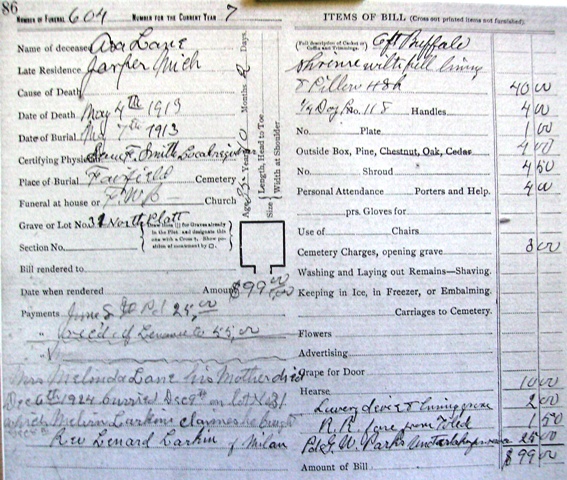 86
NUMBER OF FUNERAL 604 NUMBER FOR THE CURRENT YEAR 7
Name of deceased Asa Lane
Late Residence Jasper Mich
Cause of Death
Date of Death May 4th 1913
Date of Burial May 7th 1913
Certifying Physic F. Smith Local
Place of Burial Fairfield Cemetery
Funeral at house or Church
Grave or Lot No. 31 North Platt
Draw thus [ ] for Graves already in the Plat and designate this one with a Cross †. Show position of monument by □.
Section No.
Bill rendered to
Date when rendered Amount $99 00
Payments June 25, 00
" Lenawee 55, 00
"
Mrs Melinda Lane his Mother died
Dec 6th 1924 burried Dec 9th on lot 31
Melvin Larkins
Rev Lenard Larkin of Milan
Age Years Months Days.
Size Length, Head to Toe
Width at Shoulder
ITEMS OF BILL (Cross out printed items not furnished).
(Full description of Casket or Coffin and Trimmings.) 6 ft Buffalo
lining
& Pillow 40 00
No. 118 Handles 4 00
No. Plate 1 00
Outside Box, Pine, Chestnut, Oak, Cedar 4 00
No. Shroud 4 50
Personal Attendance Porters and Help. 4 00
prs. Gloves for
Use of Chairs
Cemetery Charges, opening grave 3 00
Washing and Laying out Remains—Shaving.
Keeping in Ice, in Freezer, or Embalming.
Carriages to Cemetery.
Flowers
Advertising
Crape for Door
Hearse 10 00
Livery 2 00
R. R. fare from Toled 1 50
Pd G. W. Parks 25 00
Amount of Bill $99 00